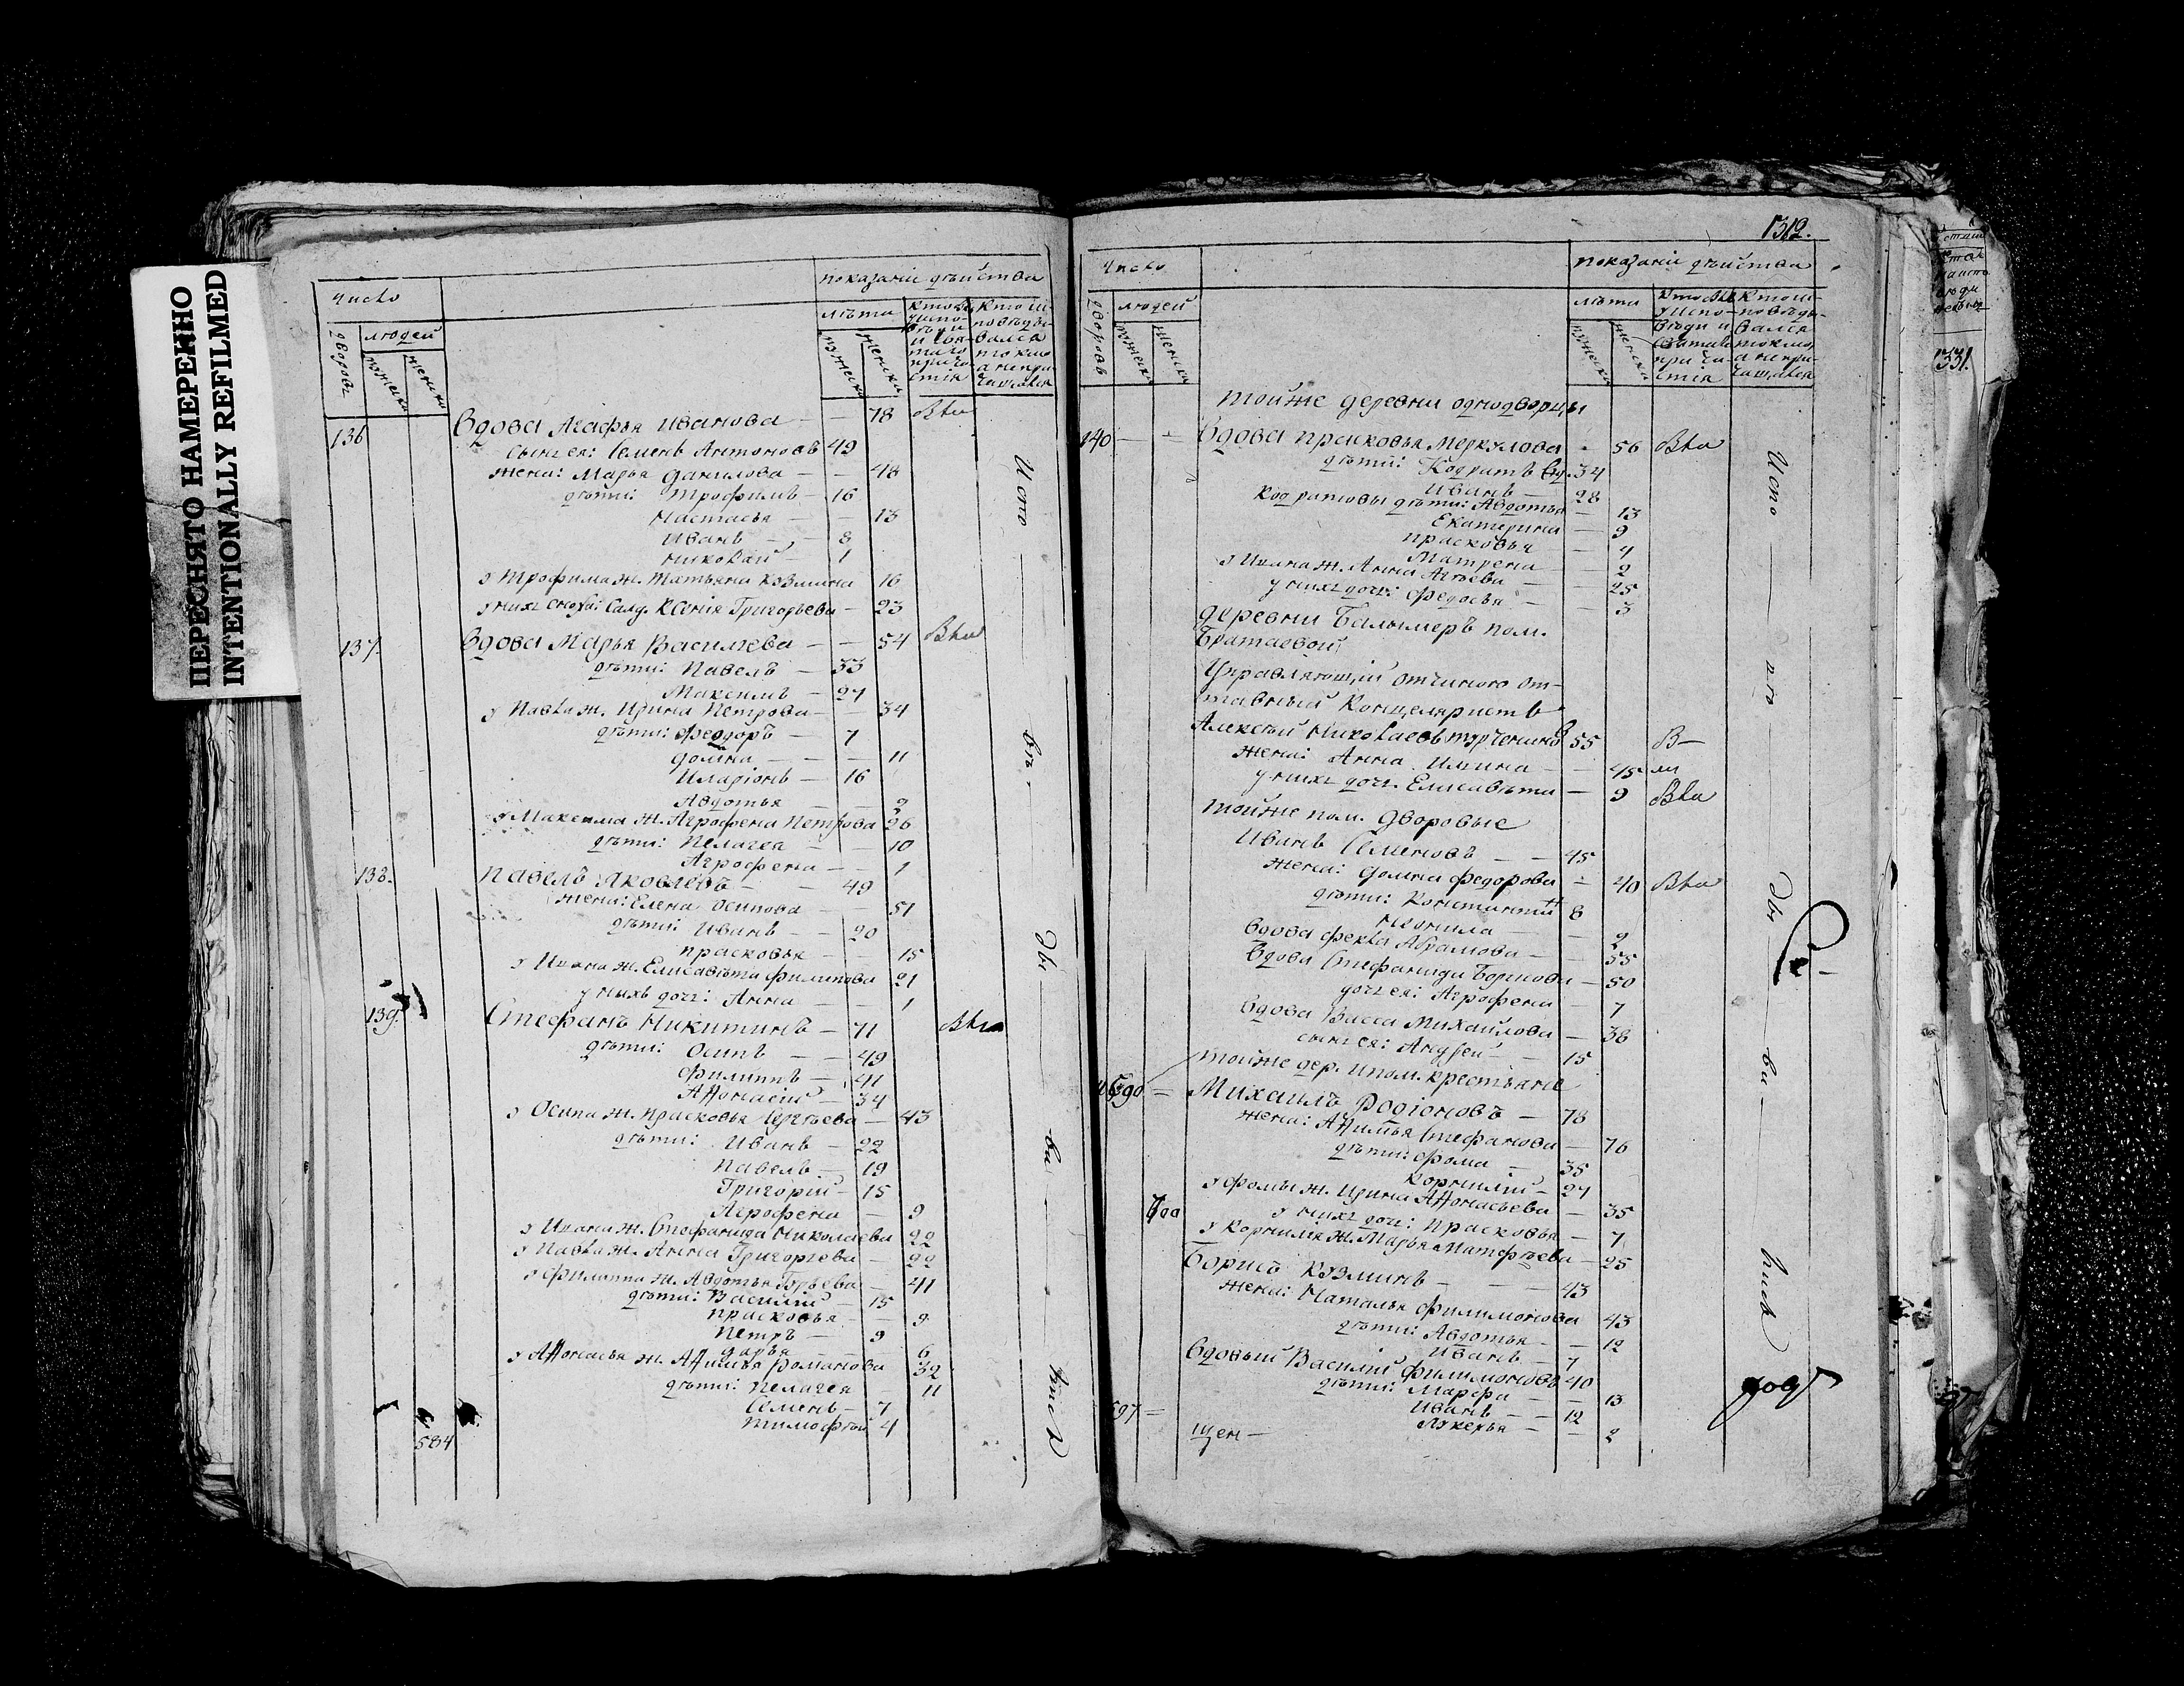 ПЕРЕСНЯТО НАМЕРЕННО
INTENTIONALLY REFILMED
число
показаніи дѣйства
дворовъ
людей
мужеска
женска
лѣта
мужеска
женска
136
вдова Агафья Иванова — 78 Были
сынъ ея: Семенъ Антоновъ 49
жена: Марья Данилова — — 48
дѣти: Трофимъ — 16
Настасья — — 13
Иванъ — — 8
Николай — 1
у Трофима ж. Татьяна Кузмина 16
у нихъ сноха: Салд. Ксенія Григорьева — 23
137. вдова Марья Василева — — 54 Были
дѣти: Павелъ — 33
Максимъ — 27
у Павла ж. Ирина Петрова — 34
дѣти: Феодоръ — 7
Домна — — — 11
Иларіонъ — 16
Авдотья — — 2
у Максима ж. Агрофена Петрова 26
дѣти: Пелагея — — 10
Агрофена — — 1
138. Павелъ Яковлевъ — — 49
жена: Елена Осипова — — 51
дѣти: Иванъ — — 20
Прасковья — — 15
у Ивана ж. Елисавѣта Филипова 21
у ныхъ дочь: Анна — — 1
139. Стефанъ Никитинъ — 71 Были
дѣти: Осипъ — — 49
Филиппъ — 41
Афонасій — 34
у Осипа ж. Прасковья Сергѣева — 43
дѣти: Иванъ — 22
Павелъ — 19
Григорій — 15
Агрофена — 9
у Ивана ж. Стефанида Николаева 22
у Павла ж. Анна Григорьева — 22
у Филиппа ж. Авдотья Гурьева — 41
дѣти: Василій — 15
Прасковья — — 9
Петръ — 9
Дарья — — 6
у Афонасья ж. Афимья Романова 32
дѣти: Пелагея — 11
Семенъ — 7
Тимофѣй 4
584
Испо
вѣ
ды
ва
лись
1312.
число
показаніи дѣйства
дворовъ
людей
мужеска
женска
лѣта
мужеска
женска
тойже деревни однодворцы
140 — вдова Прасковья Меркулова — 56 Были
дѣти: Кодратъ вд. 34
Иванъ — 28
Кодратовы дѣти: Авдотья — 13
Екатерина — 9
Прасковья — 4
Матрена — 2
у Ивана ж. Анна — 25
у нихъ дочь: Федосья — 3
деревни Балымеръ пом.
Братаевой
Управляющій отчиною от-
ставный Канцеляристъ
Алексѣй Николаевъ 55 В—
жена: Анна Ильина — — 45 ли
у нихъ дочь. Елисавѣта — 9 Были
тойже пом. дворовые
Иванъ Семеновъ — — 45
жена: Домна Федорова — 40 Были
дѣти: Констинтинъ 8
Неонила — — 2
вдова Фекла Абрамова — — 55
вдова Стефанида Борисова — 50
дочь ея: Агрофена — 7
вдова Васса Михайлова — 38
сынъ ея: Андрей — — 15
тойже дер. ипом. крестьяне
590 — Михаилъ Родіоновъ — 78
жена: Афимья Стефанова — 76
дѣти: Фома — 35
Корнилій — 27
у Фомы ж. Ирина Афонасьева — 35
у нихъ дочь: Прасковья — 7
у Корнилія ж. Марья Матфѣева — 25
600
Борисъ Кузминъ — — 43
жена: Наталья Филимонова 43
дѣти: Авдотья — — 12
Иванъ — 7
вдовый Василій Филимоновъ 40
дѣти: Марфа — — 13
Иванъ — — 12
597 —
Лукерья — — 2
щен —
Испо
вѣ
ды
ва
лись
331.